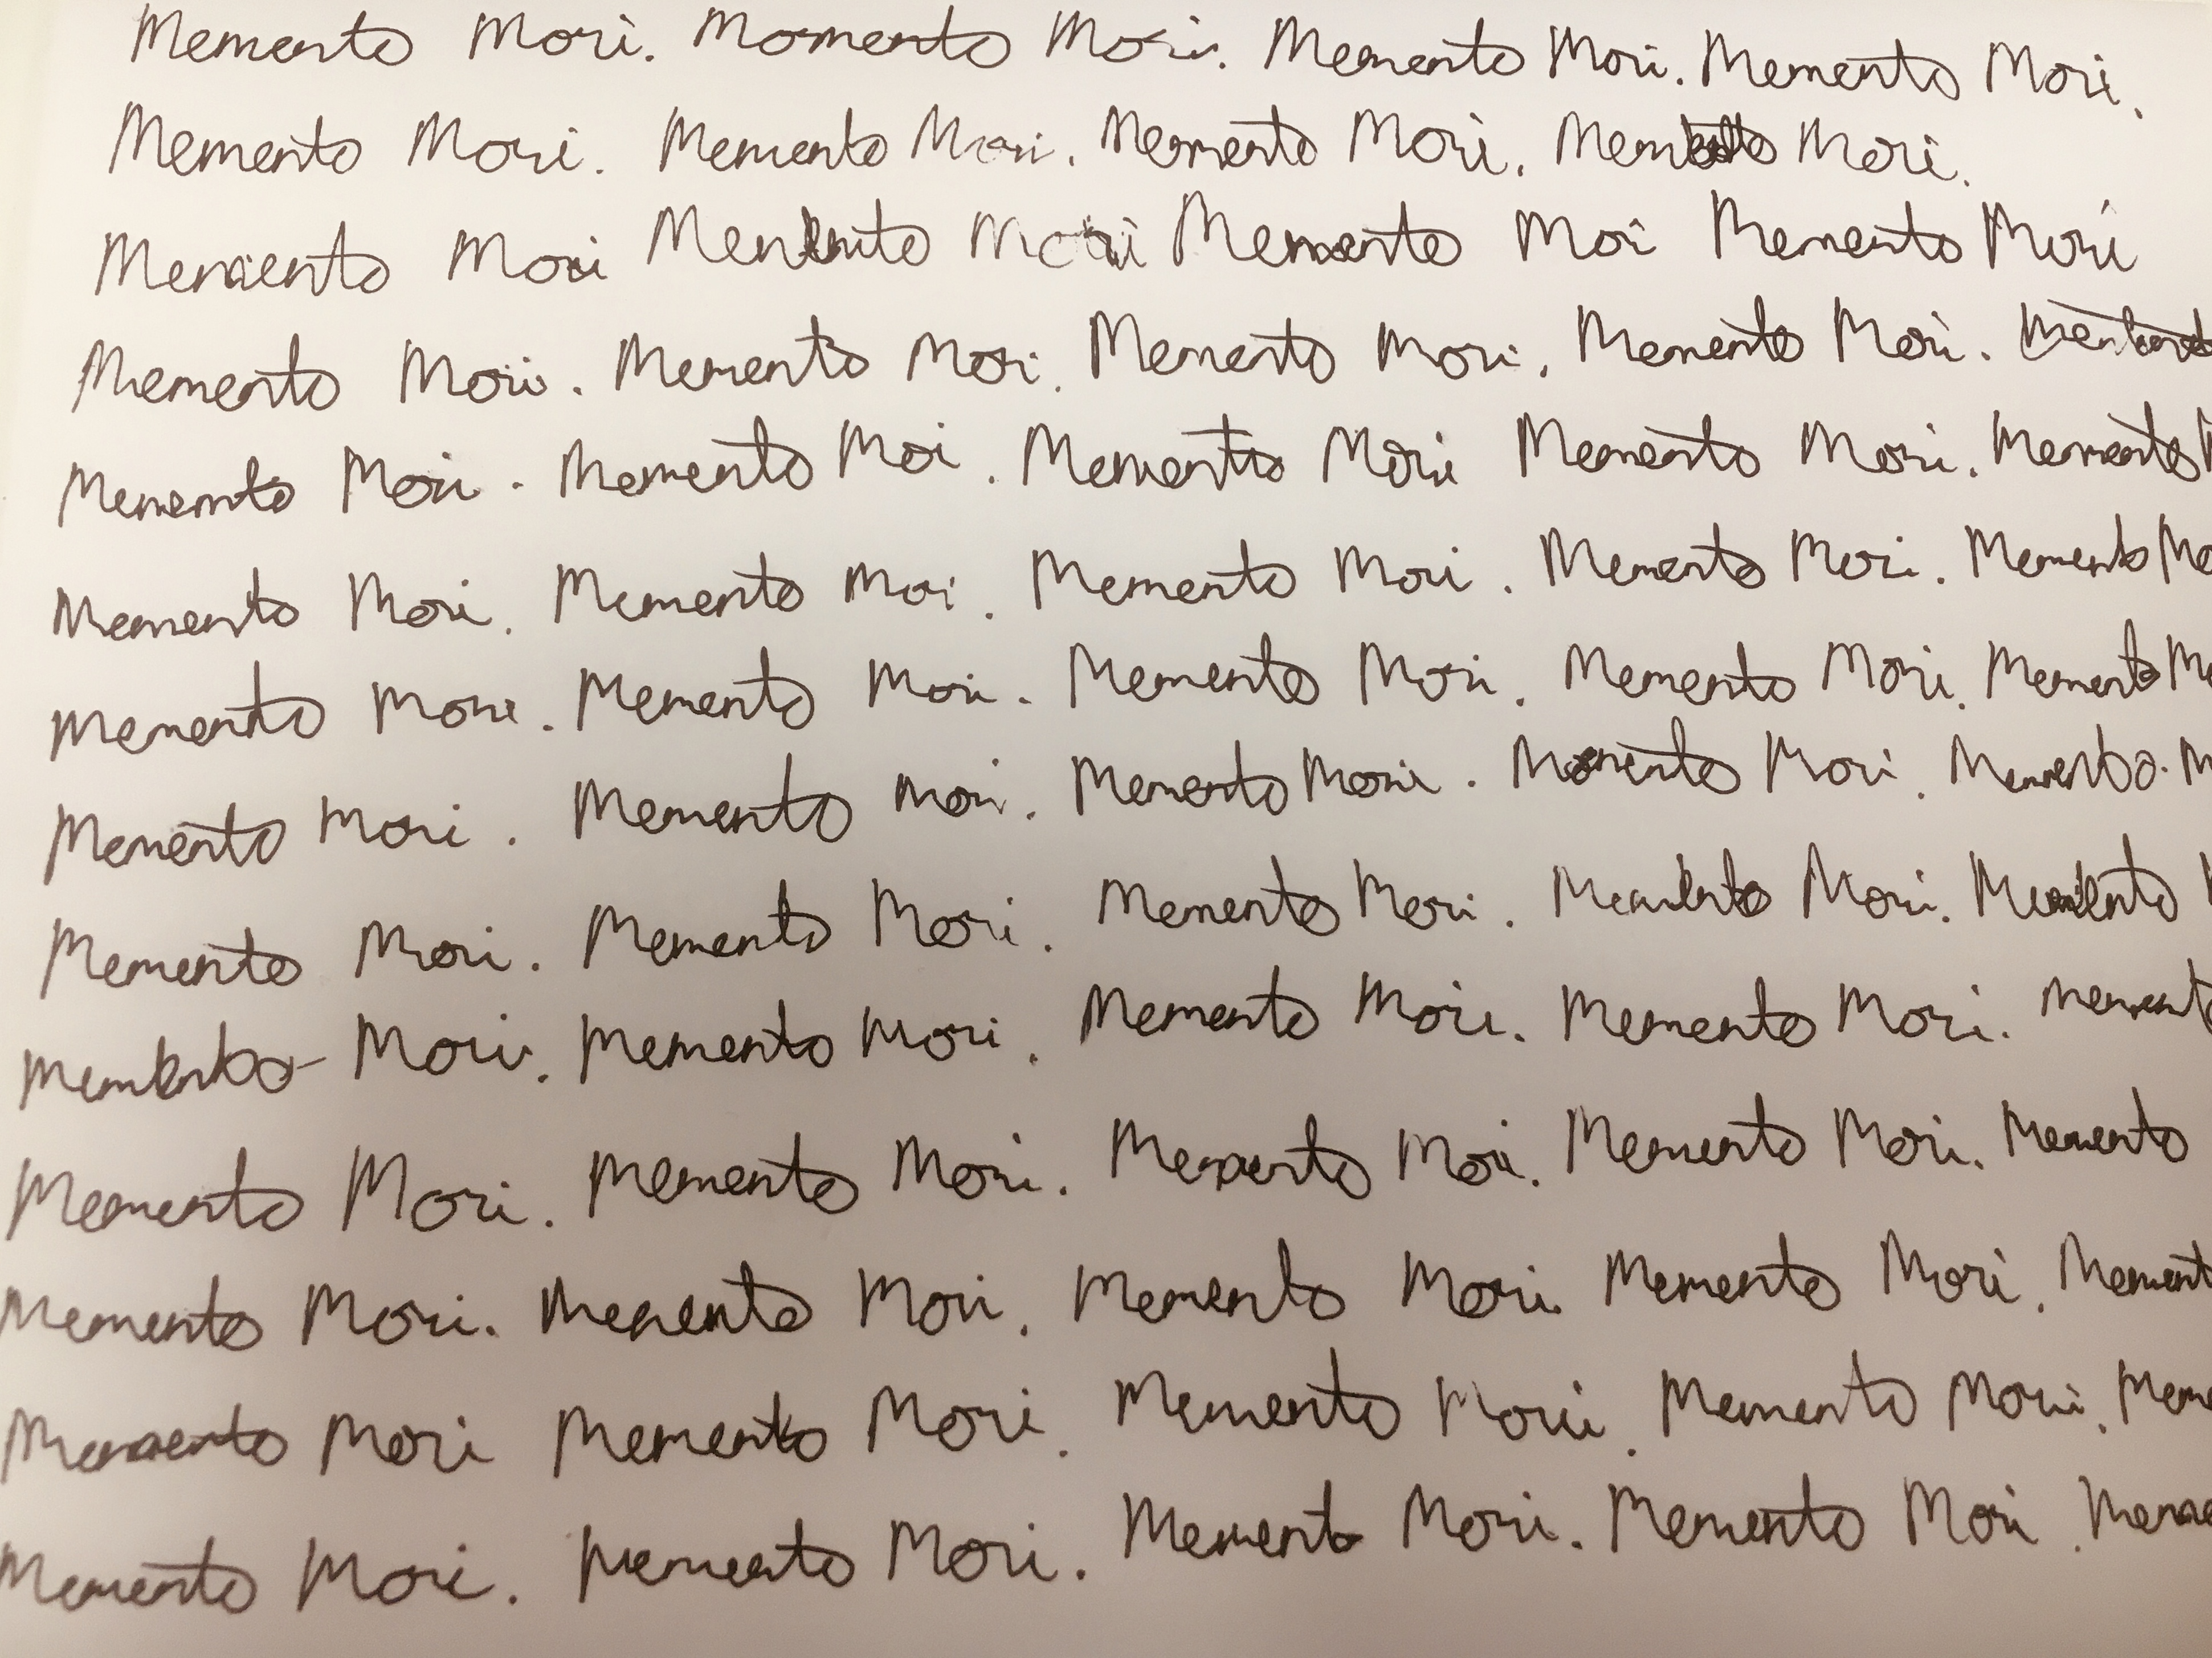 Memento Mori. Momento Mori. Memento Mori. Memento Mori.
Memento Mori. Memento Mori. Memento Mori. Mori.
Memento Mori Mori Memento Moi Memento Mori
Memento Mori. Memento Mori. Memento Mori. Memento Mori.
Memento Mori. Memento Moi. Memento Mori Memento Mori. Memento
Memento Mori. Memento Moi. Memento Mori. Memento Mori. Memento Mo
Memento Mori. Memento Mori. Memento Mori. Memento Mori. Memento Mo
Memento Mori. Memento Mori. Memento Mori. Memento Mori. Memento. M
Memento Mori. Memento Mori. Memento Mori. Memento Mori. Memento
Memento Mori. Memento Mori. Memento Mori. Memento Mori. Mement
Memento Mori. Memento Mori. Memento Mori. Memento Mori. Memento
Memento Mori. Memento Mori. Memento Mori Memento Mori. Mement
Memento Mori Memento Mori. Memento Mori. Memento Mori. Meme
Memento Mori. Memento Mori. Memento Mori. Memento Mori. Meme